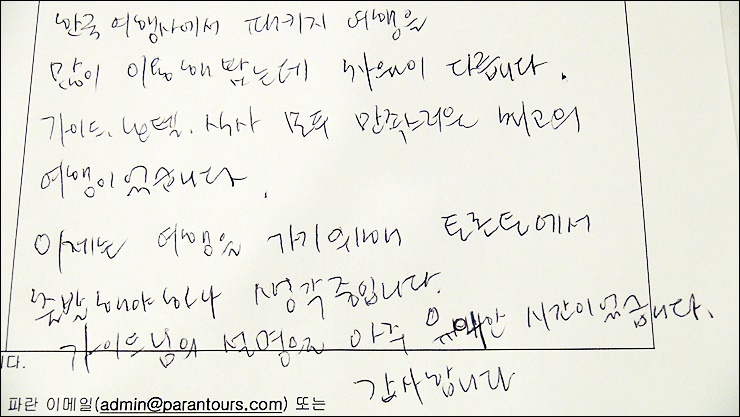 한국 여행사에서 패키지 여행을
많이 이용해 봤는데 차원이 다릅니다.
가이드. 호텔. 식사 모두 만족스러운 최고의
여행이었습니다.
이제는 여행을 가기위해 토론토에서
출발해야 하나 생각중입니다.
가이드님의 설명으로 아주 유쾌한 시간이었습니다.
감사합니다
니다.
파란 이메일(admin@parantours.com) 또는